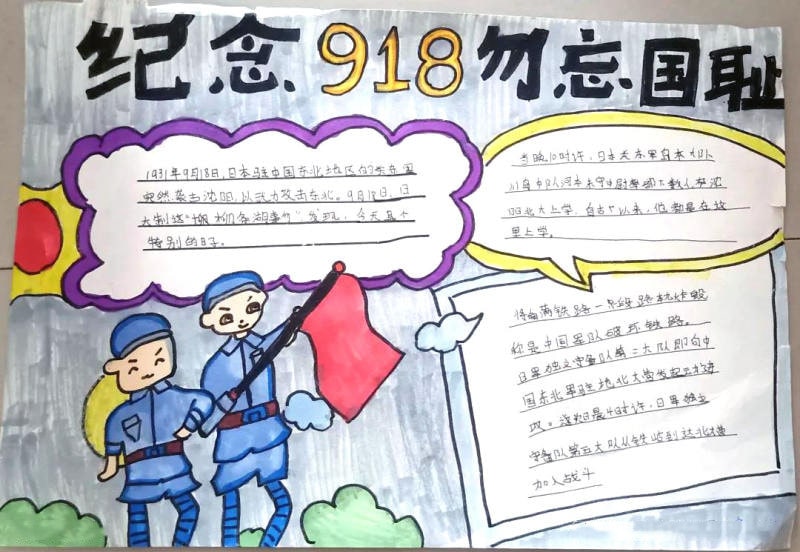 纪念918勿忘国耻
1931年9月18日,日本驻中国东北地区的关东军
突然袭击沈阳,以武力攻击东北。9月18日,日
大制造"柳条湖事
特别的日子。
当晚10时许,日本关东军岛本大队
川岛中队河本末守中尉率
里上学。
将南满铁路一段路轨炸毁
称是中国军队破坏铁路。
日军独立守备队第二大队即向中
国东北军驻地北大营发起
攻。次日晨4时许,日军独立
守备队第五大队从铁岭到达北大营
加入战斗